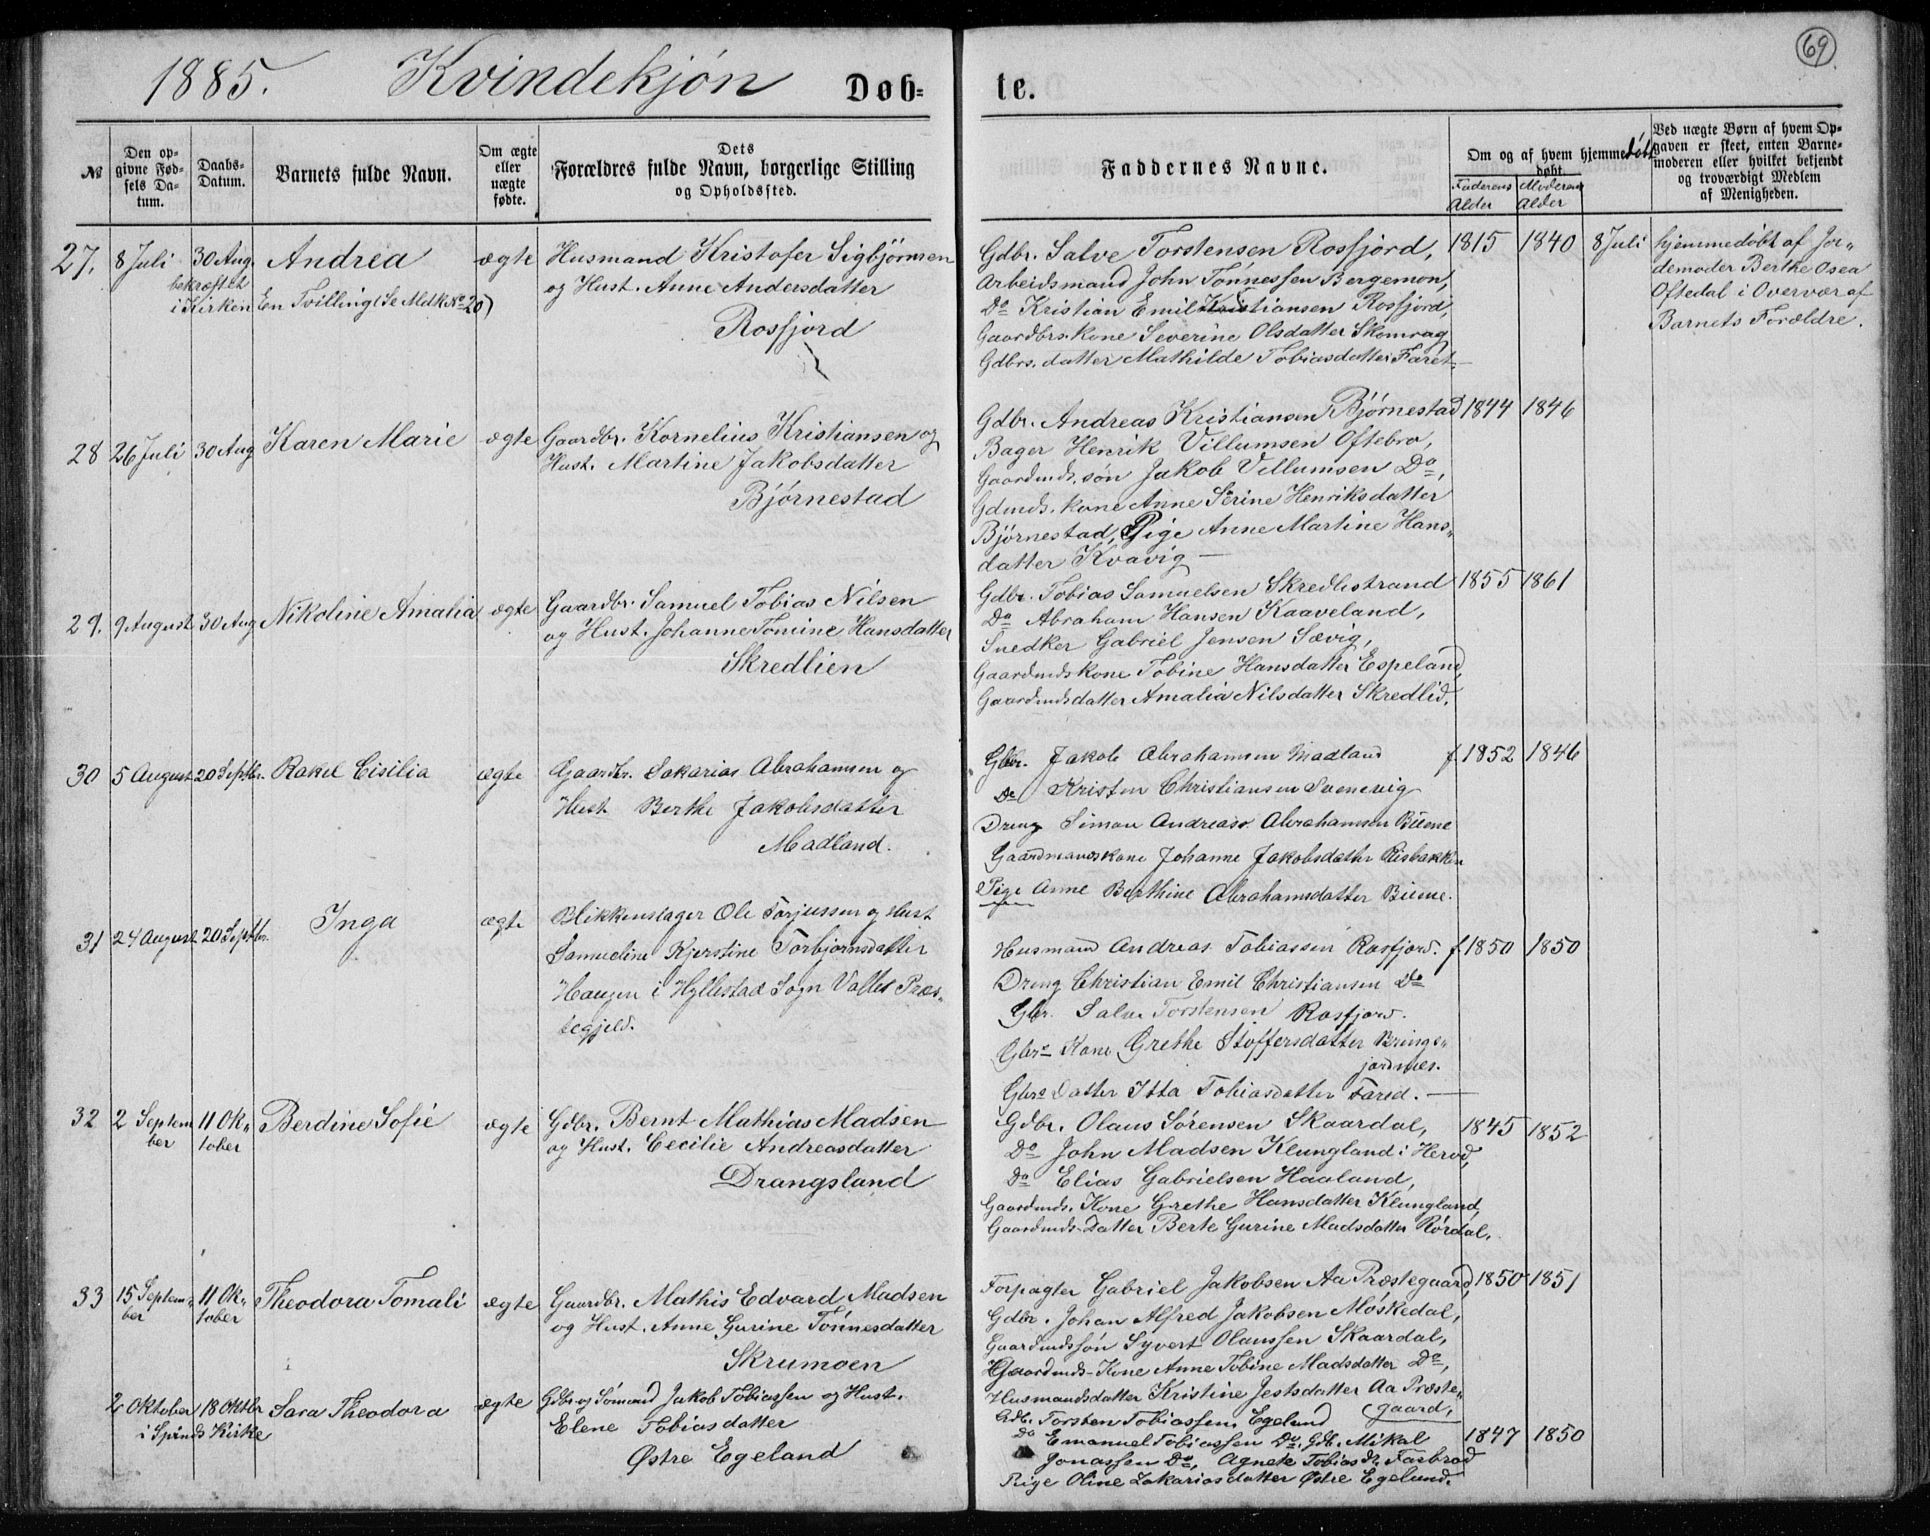 69
1885. Kvindekjøn Døb= te.
№
Den op-
givne Fød-
sels Da-
tum.
Daabs-
Datum.
Barnets fulde Navn.
Om ægte
eller
uægte
fødte.
Dets
Forældres fulde Navn, borgerlige Stilling
og Opholdssted.
Faddernes Navne.
Om og af hvem hjemmedøbt
døbt.
Faderens
Alder
Moderens
Alder
Ved uægte Børn af hvem Op-
gaven er skeet, enten Barne-
moderen eller hvilket bekjendt
og troværdigt Medlem
af Menigheden.
27. 8 Juli 30 Aug. Andrea ægte Husmand Kristofer Sigbjørnsen
bekræftet og Hust. Anne Andersdatter
i Kirken En Tvilling (Se Mdk No 20)
Rosfjord
Gdbr. Salve Torstensen Rosfjord, 1815 1840 8 Juli
Arbeidsmand John Tønnessen Bergemon,
Do Kristian Emil Kristiansen Rosfjord,
Gaardbrs. kone Severine Olsdatter Skomrag
Gdbrs. datter Mathilde Tobiasdatter Faret
hjemmedøbt af Jor-
demoder Berthe Osea
Oftedal i Overvær af
Barnets Forældre.
28 26 Juli 30 Aug Karen Marie ægte Gaardbr. Kornelius Kristiansen og
Hust. Martine Jakobsdatter
Bjørnestad
Gdbr. Andreas Kristiansen Bjørnestad 1844 1846
Bager Henrik Villumsen Oftebro,
Gaardmds. søn Jakob Villumsen Do,
Gdmds. kone Anne Serine Henriksdatter
Bjørnestad, Pige Anne Martine Hans-
datter Kvavig
29. 9 August 30 Aug Nikoline Amalia ægte Gaardbr. Samuel Tobias Nilsen
og Hust. Johanne Tomine Hansdatter
Skredlien
Gdbr. Tobias Samuelsen Skredlistrand 1855 1861
Do Abraham Hansen Kaaveland,
Snedker Gabriel Jensen Sævig,
Gaardmdskone Tobine Hansdatter Espeland,
Gaardmdsdatter Amalia Nilsdatter Skredlid.
30 5 August 20 Septbr. Rakel Cisilia ægte Gaardbr. Sakarias Abrahamsen og
Hust Berthe Jakobsdatter
Madland.
Gbr. Jakob Abrahamsen Madland f. 1852 1846
Do Kristen Christiansen Svenevig
Dreng Simon Andreas Abrahamsen Biene
Gaardmandskone Johanne Jakobsdatter Risbakken
Pige Anne Berthine Abrahamsdatter Biene.
31 24 August 20 Septbr. Inga ægte Blikkenslager Ole Tarjussen og Hust
Samueline Kjerstine Torbjørnsdatter
Haugen i Hyllestad Sogn Valles Præs-
tegjeld.
Husmand Andreas Tobiassen Rosfjord. f. 1850 1850
Dreng Christian Emil Christiansen Do
Gbr. Salve Torstensen Rosfjord.
Gbrs Kone Grethe Stoffersdatter Brings-
jordnes.
Gbrs Datter Itta Tobiasdatter Fared.
32 2 Septem 11 Ok- Berdine Sofie ægte Gdbr. Bernt Mathias Madsen
ber tober og Hust. Cecilie Andreasdatter
Drangsland
Gdbr. Olaus Sørensen Skaardal, 1845 1852
Do John Madsen Klungland i Herød,
Do Elias Gabrielsen Haaland,
Gaardmds. Kone Grethe Hansdatter Klungland,
Gaardmds-Datter Berte Gurine Madsdatter Rørdal.
33 15 Septem- 11 Ok- Theodora Tomali ægte Gaardbr. Mathis Edvard Madsen
ber tober og Hust. Anne Gurine Tønnesdatter
Skrumoen
Forpagter Gabriel Jakobsen Aa Præstegaard, 1850 1851
Gdbr. Johan Alfred Jakobsen Møskedal,
Gaardmdssøn Syvert Olaussen Skaardal,
Gaardmds-Kone Anne Tobine Madsdatter Do,
Husmandsdatter Kristine Jestsdatter Aa Præste-
gaard,
2 Oktober 18 Oktbr Sara Theodora ægte Gdbr og Sømand Jakob Tobiassen og Hust.
i Spinds Kirke Elene Tobiasdatter
Østre Egeland
Gdb. Torsten Tobiassen Egeland
Do Emanuel Tobiassen Do, Gdb. Mikal 1847 1850
Jonassen Do, Agnete Tobiasdr. Farbrod
Pige Oline Zakariasdatter Østre Egeland.